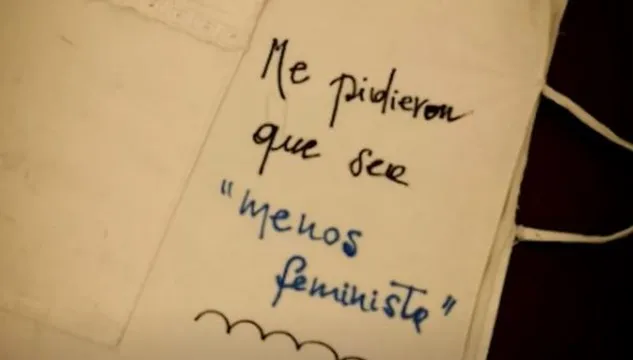 Me pidieron
que ser
"menos
feminista"